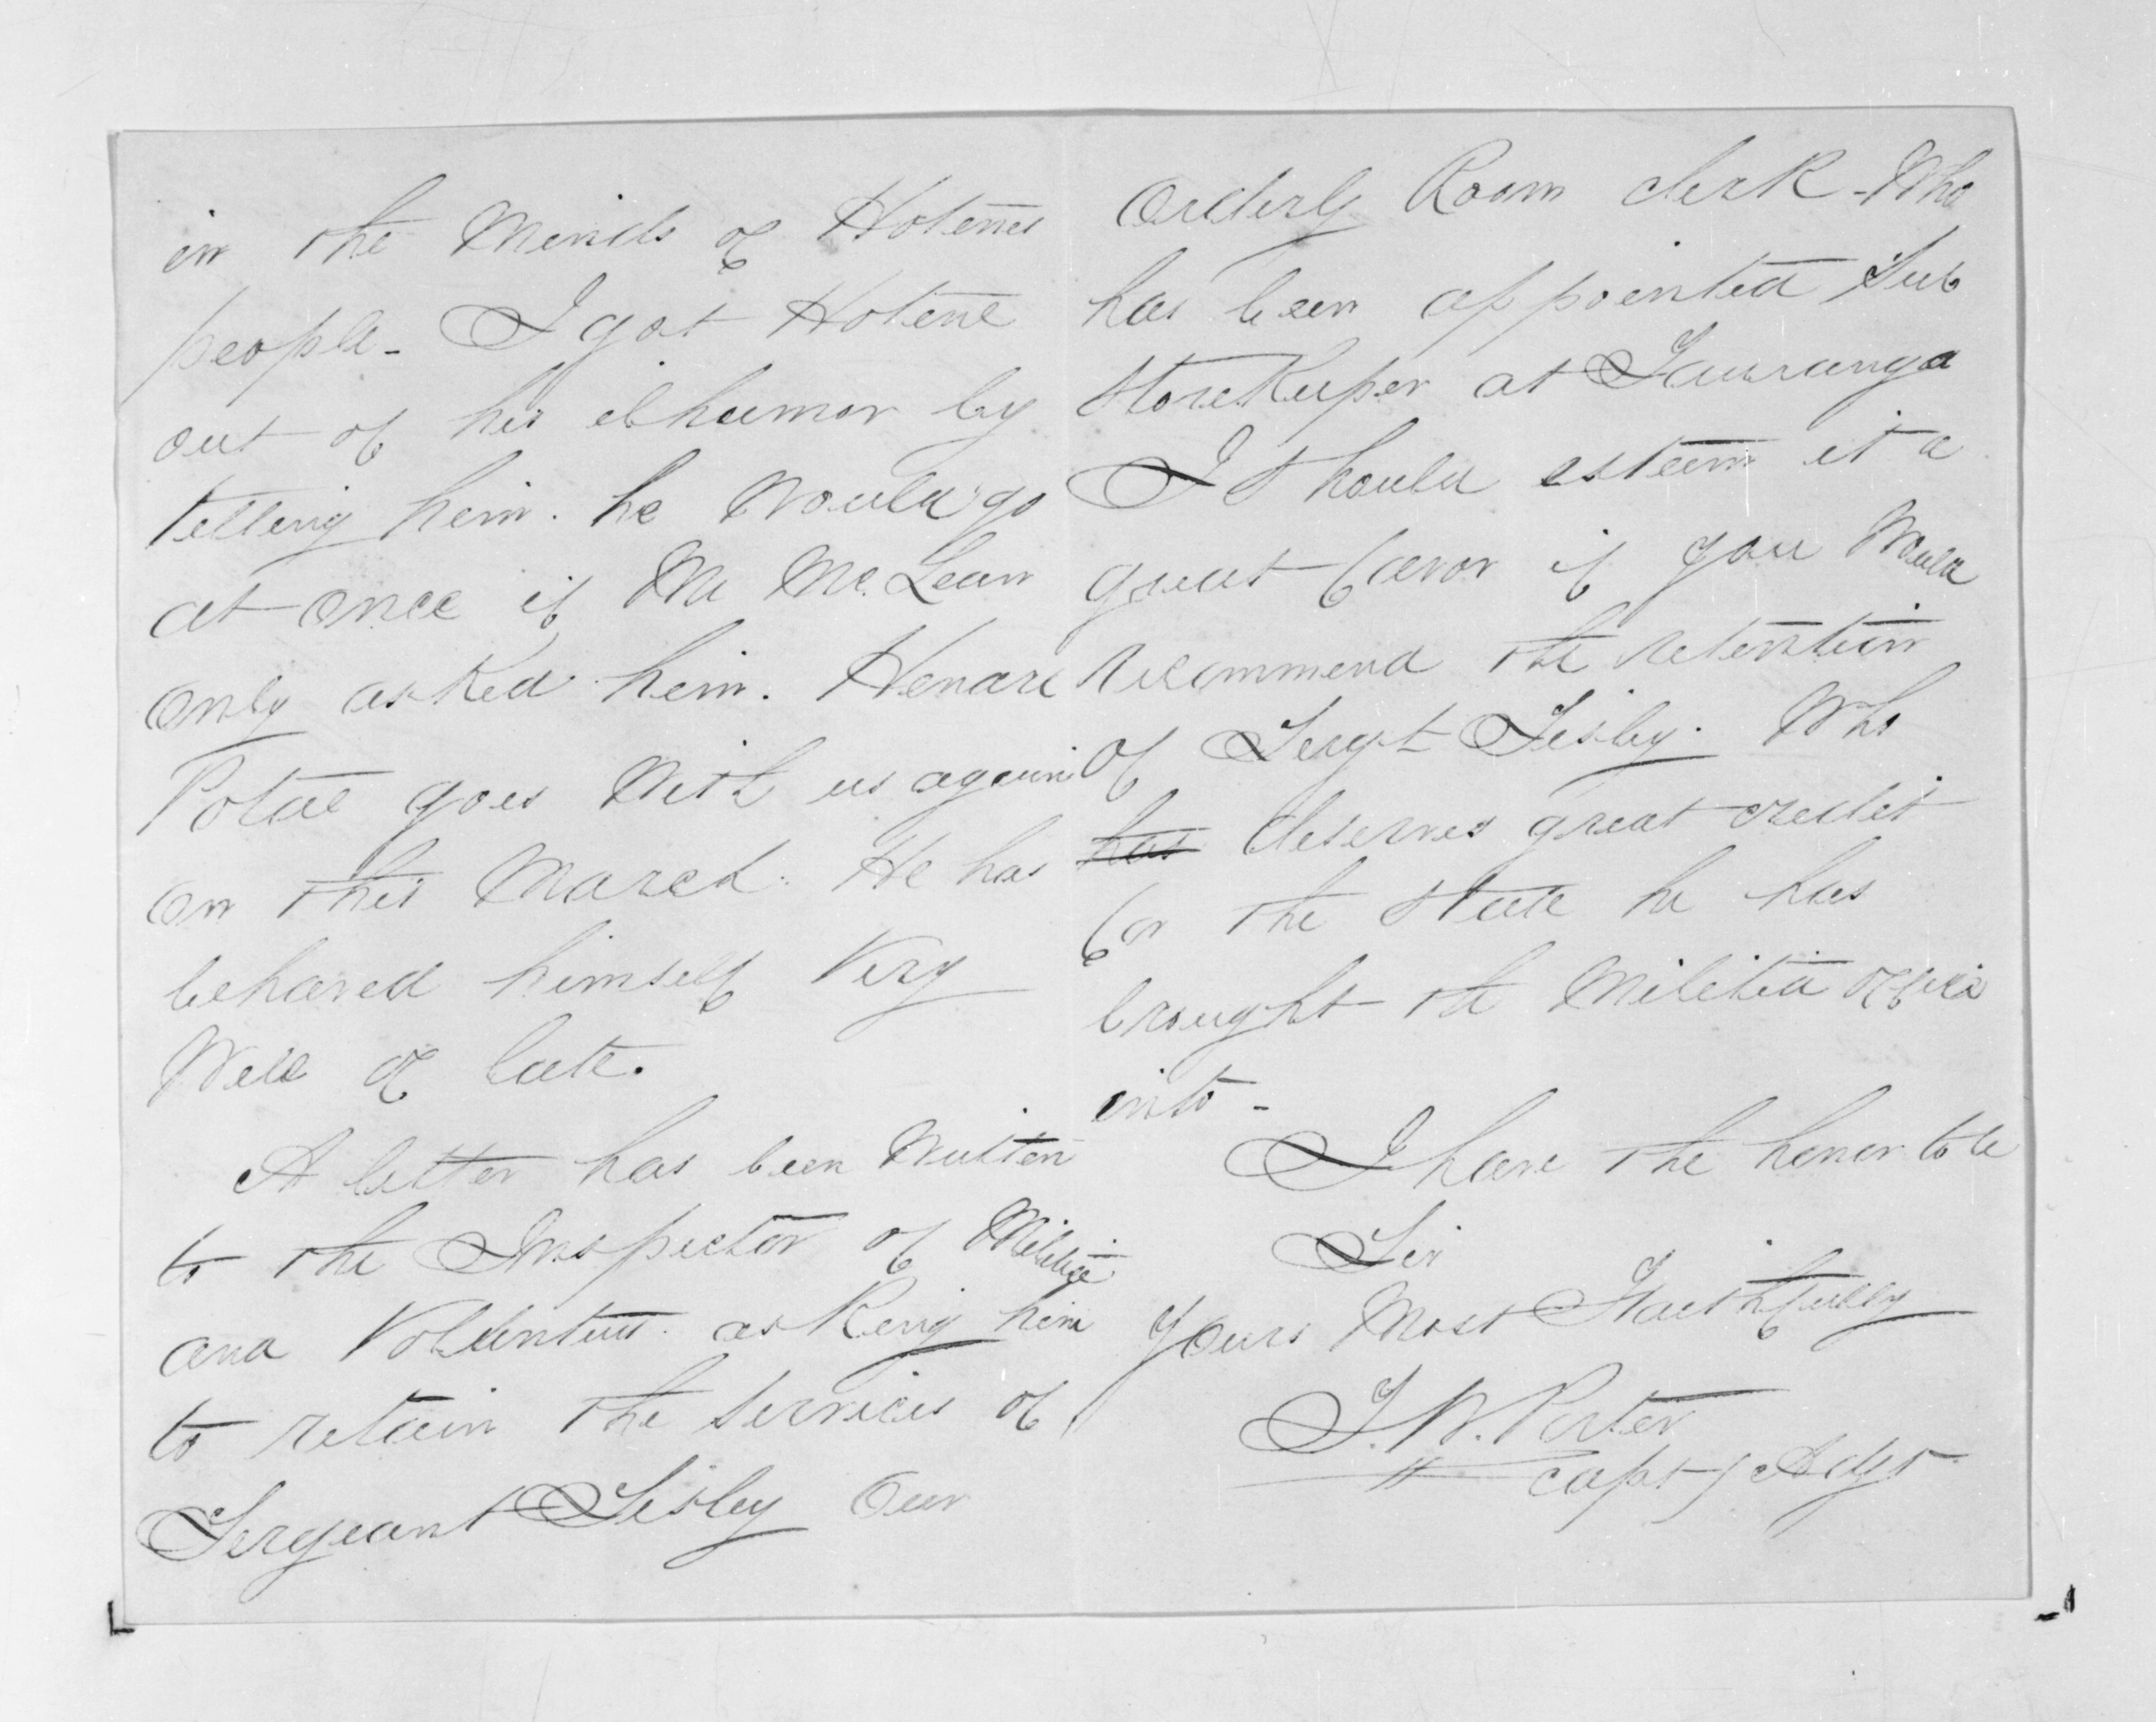 in the Minds of Hotenes
people - I got Hotene
out of his illhumor by
telling him. he Would go
at once if Mr McLean
only asked him. Henare
Potae goes With us again
on this March. He has
behaved himself Very
Well of late.
A letter has been Written
to the Inspector of Militia
and Volunteers asking him
to retain the Services of
Sergeant Sisley Our
Orderly Room clerk - Who
has been appointed Sub
StoreKeeper at Tauranga
I Should esteem it a
great favor if you Would
recommend the retention
of Sergt Sisley. Who
has deserves great credit
for the state he has
brought the Militia office
into -
I have the honor to be
Sir
Yours Most Faithfully
J. W. Porter
Capt & Adjt